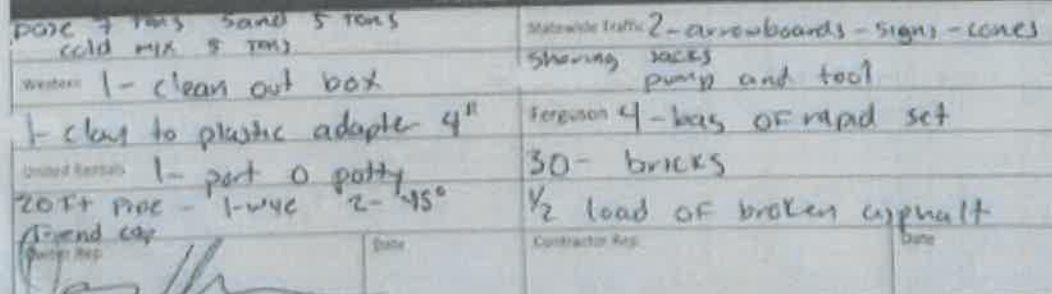 base 7 Tons Sand 5 Tons
cold mix 5 Tons
Western 1- clean out box
1- clay to plastic adapter 4"
United Rentals 1- port o potty
20 Ft Pipe - 1-wye 2- 45°
1-end cap
Owner Rep.
Date
Statewide Traffic 2-arrowboards-signs-cones
Shoring Jacks
pump and tool
Ferguson 4-bag of rapid set
30- bricks
1/2 load of broken asphalt
Contractor Rep.
Date